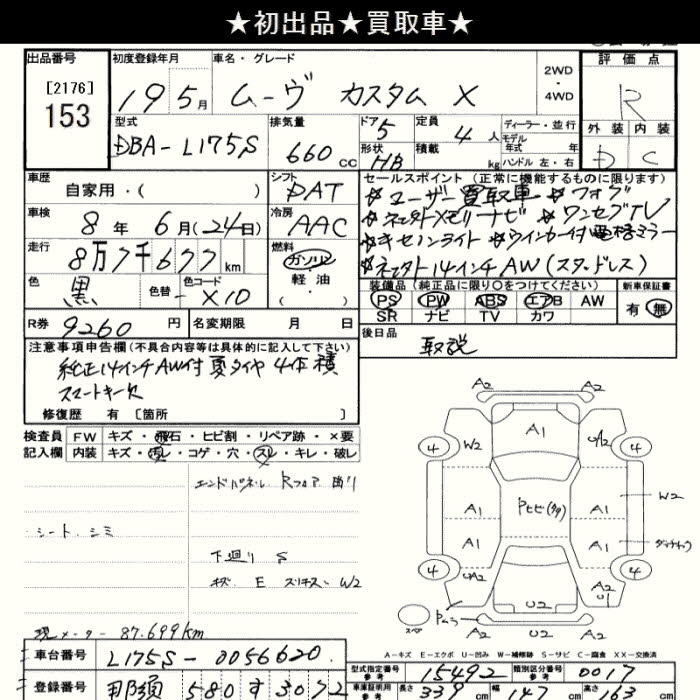 ★初出品★買取車★
出品番号
[2176]
153
初度登録年月
19 5 月
車名・グレード
ムーヴ カスタム X
2WD
・
4WD
評価点
R
外装 内装
D C
型式
DBA-L175S
排気量
660 cc
ドア 5
形状 HB
定員 4 人
積載 kg
ディーラー・並行
モデル
年式 年
ハンドル 左・右
車歴
自家用・( )
シフト
DAT
車検
8 年 6 月(24日)
冷房
AAC
走行
8万7千677 km
燃料
ガソリン
軽油
( )
色
黒
色替
色コード
X10
R券 9260 円
名変期限 月 日
セールスポイント(正常に機能するものに限ります)
☆ユーザー買取車 ☆フォグ
☆ネエクトXモリーナビ ☆ワンセグTV
☆キセノンライト ☆ウインカー付電格ミラー
☆ネエクト14インチAW(スタッドレス)
装備品(純正品に限り○をつけてください)
PS PW ABS エアB AW
SR ナビ TV カワ
新車保証書
有 無
後日品
取説
注意事項申告欄(不具合内容等は具体的に記入して下さい)
純正14インチAW付夏タイヤ4本積
スマートキー欠
修復歴 有[箇所 ]
検査員
記入欄
FW キズ・飛石・ヒビ割・リペア跡・×要
内装 キズ・汚レ・コゲ・穴・スレ・キレ・破レ
エンドパネル Rフロア 曲り
シート シミ
下廻り S
キズ E スリキズ W2
現メーター 87.699km
A2 A2
A1
4 W2 UA2 4
A1 Pヒビ(タタ) A1 W2
A1 A1
4 UA2 A2 U1 4
U2
スペア
A2 U2 A2
A-キズ E-エクボ U-凹み W-補修跡 S-サビ C-腐食 XX-交換済
車台番号 L175S-0056620
登録番号 那須 580 す 3072
型式指定番号
参考
15492
類別区分番号
参考
0017
車庫証明用
参考
長さ 339 cm 幅 147 cm 高さ 163 cm